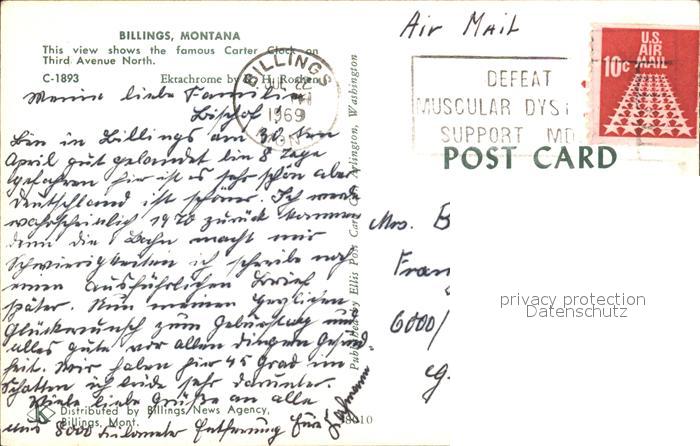 BILLINGS, MONTANA
This view shows the famous Carter Clock on
Third Avenue North.
C-1893 Ektachrome by
Meine liebe Familie
Bischof!
Bin in Billings am 30.ten
April gut gelandet bin 8 Tage
gefahren hier ist es sehr schön aber
Deutschland ist schöner. Ich werde
wahrscheinlich 1970 zurück kommen
denn die Bahn macht mir
Schwierigkeiten ich schreibe noch
einen ausführlichen Brief
später. Nun meinen herzlichen
Glückwunsch zum Geburtstag und
alles gute vor allen dingen Gesund
heit. Wir haben hier 45 Grad im
Schatten ich leide sehr darunter.
Viele liebe Grüße an alle
aus 8000 Kilometer Entfernung Eure
Distributed by Billings News Agency,
Billings, Mont.
Published by Ellis Post Card Co., Arlington, Washington
Air Mail
BILLINGS
1969
MONT
DEFEAT
MUSCULAR DYST
SUPPORT MD
U.S.
AIR
MAIL
10c
POST CARD
Mrs. B
Fran
6000/
privacy protection
Datenschutz